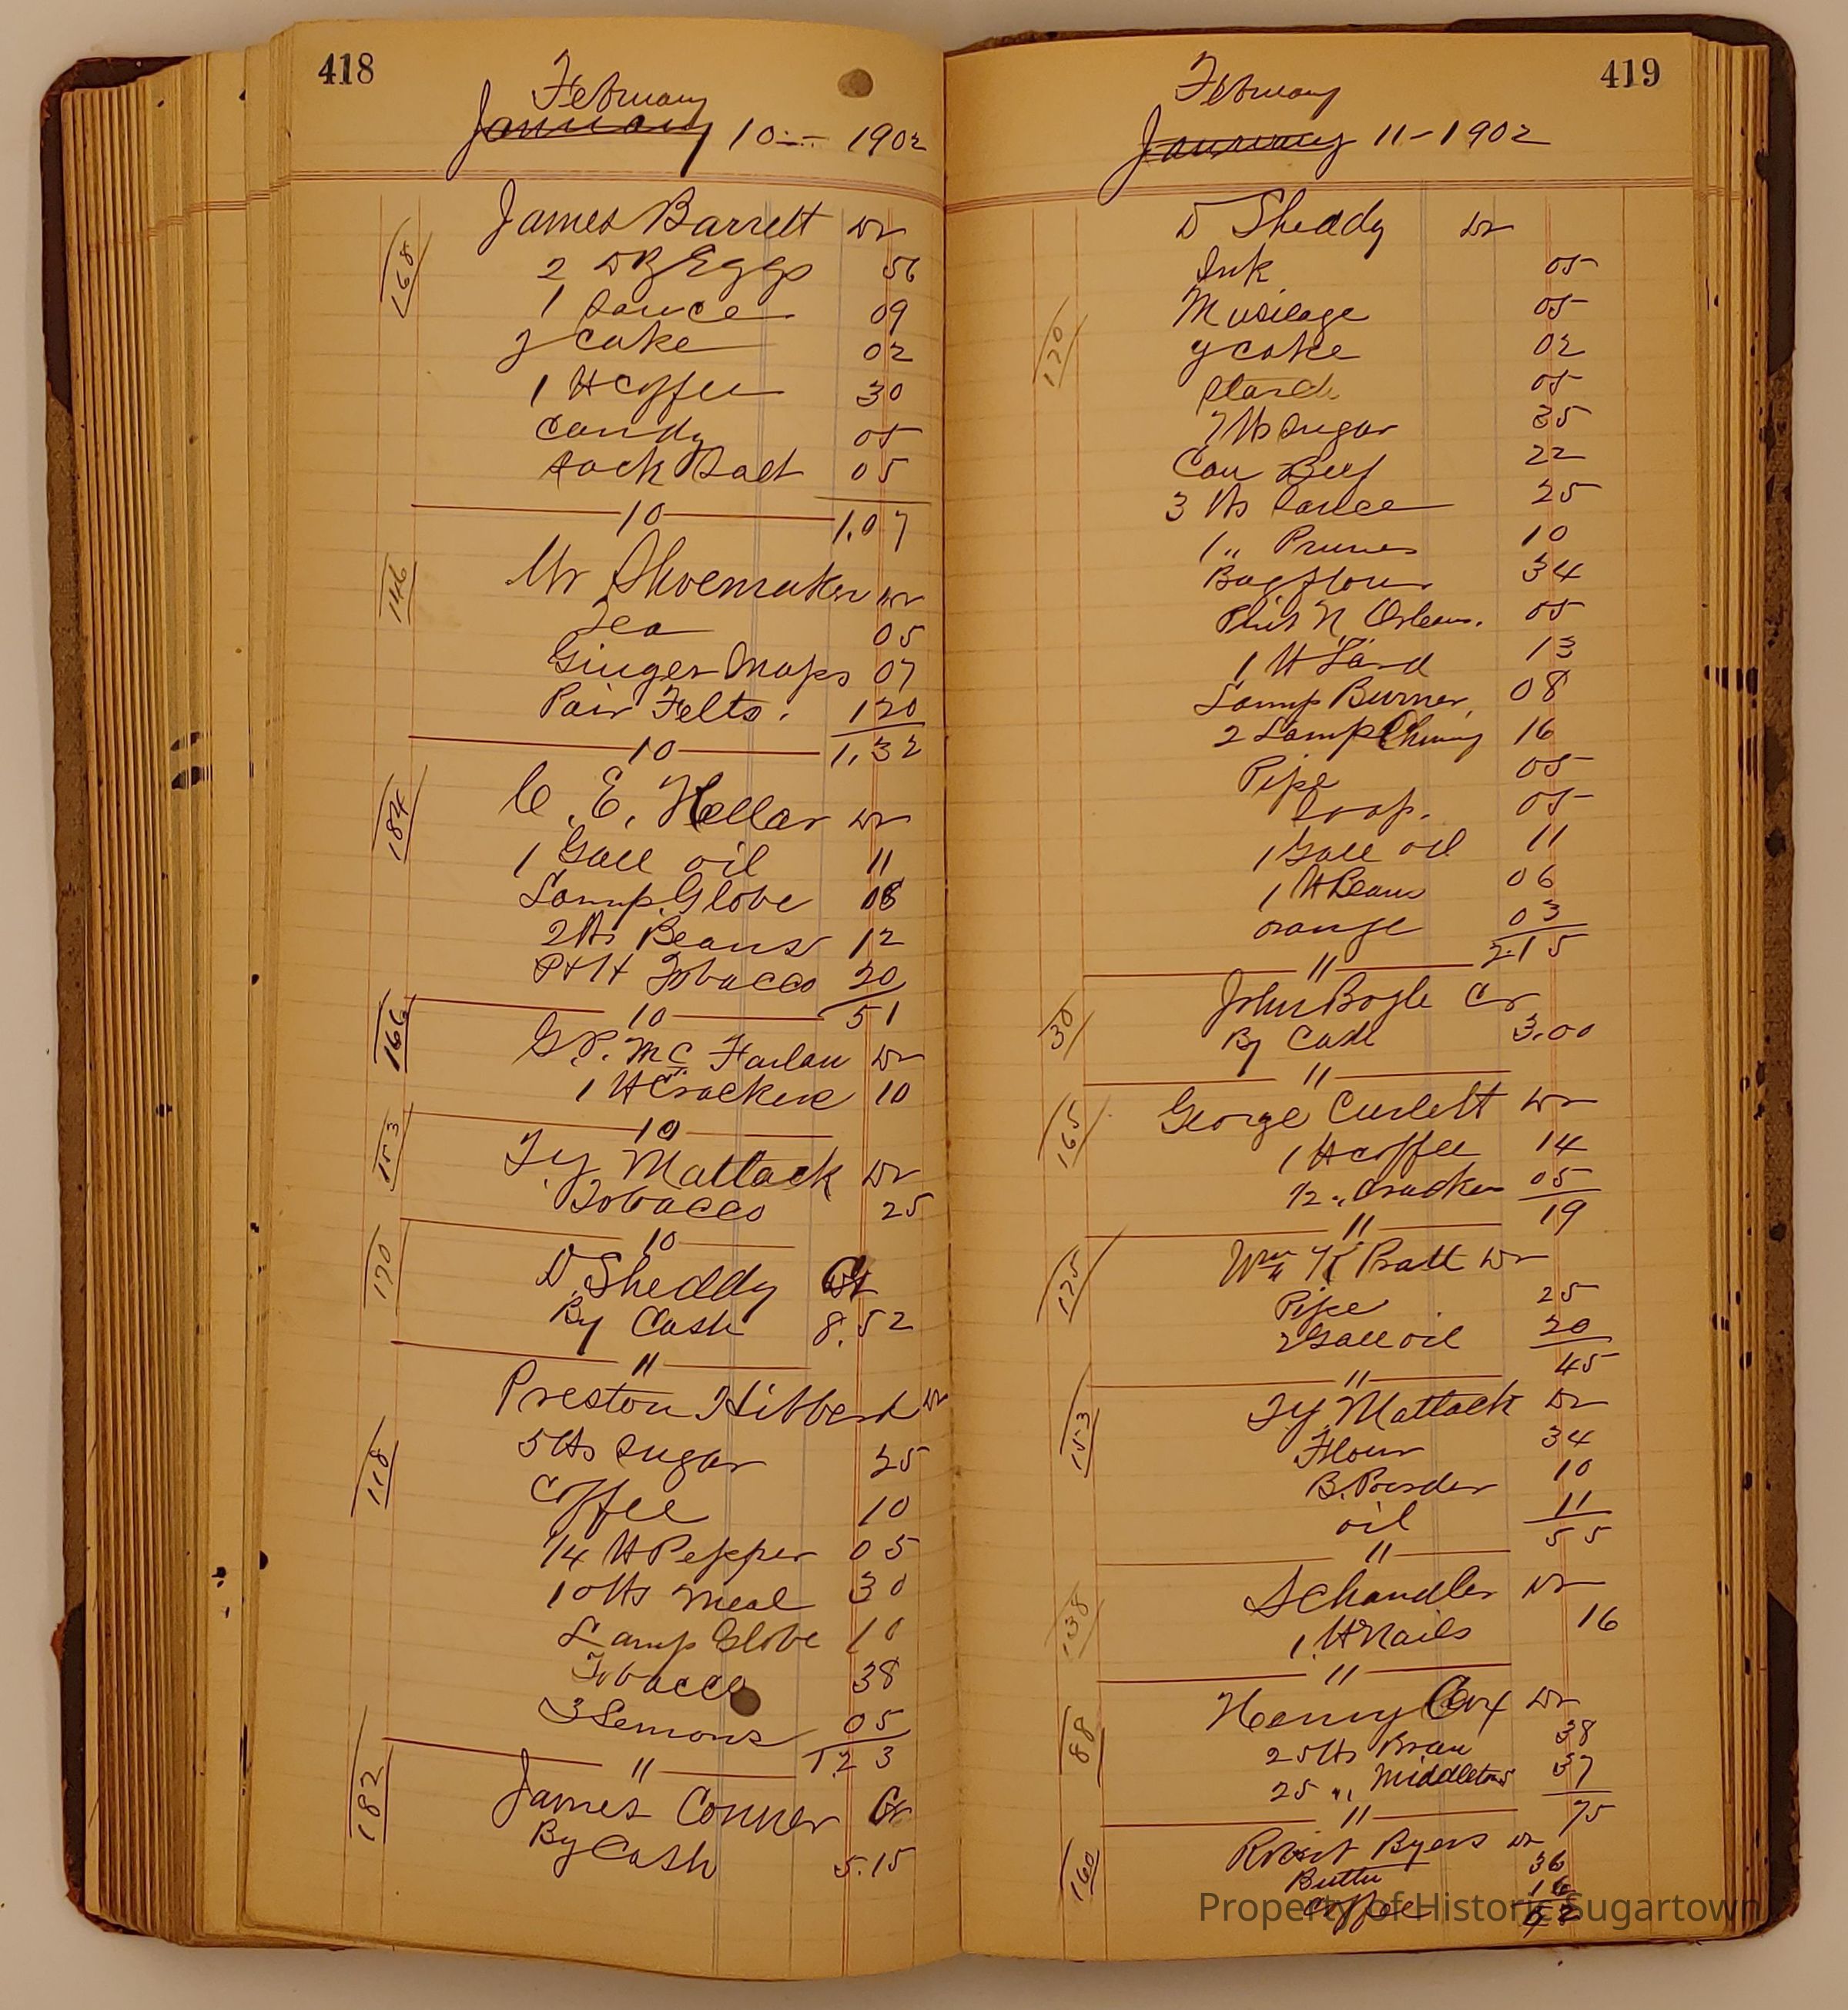 418
February
January 10 - 1902
168
James Barrett Dr
2 DZ Eggs 56
1 Sauce 09
y cake 02
1 lb coffee 30
Candy 05
sack Salt 05
10 1.07
146
Mr Shoemaker Dr
Tea 05
Ginger Snaps 07
Pair Felts. 120
10 1.32
184
C. E. Hellar Dr
1 Gall oil 11
Lamp Globe 08
2 lbs Beans 12
P+H Tobacco 20
10 51
166
G.P. Mc Farlan Dr
1 lb Crackers 10
10
153
Ty Matlack Dr
Tobacco 25
10
170
D Sheddy Cr
By Cash 8.52
11
118
Preston Hibberd Dr
5 lbs Sugar 25
Coffee 10
1/4 lb Pepper 05
10 lbs meal 30
Lamp Globe 10
Tobacco 38
3 Lemons 05
11 1.23
182
James Conner Cr
By Cash 5.15
419
February
January 11-1902
D Sheddy Dr
Ink 05
Musilage 05
120
y cake 02
Starch 05
7 lbs Sugar 35
Can Beef 22
3 lbs Sauce 25
1 " Prunes 10
Bag flour 34
Pint N Orleans. 05
1 lb Lard 13
Lamp Burner, 08
2 Lamp Chimny 16
Pipe 05
Soap. 05
1 Gall oil 11
1 lb Beans 06
orange 03
11 2.15
30
John Boyle Cr
By Cash 3.00
11
165
George Curlett Dr
1 lb coffee 14
1/2 " Cracker 05
11 19
125
Wm K Pratt Dr
Pipe 25
2 Gall oil 20
11 45
153
Ty Matlack Dr
Flour 34
B. Powder 10
oil 11
11 55
138
S Chandler Dr
1 lb Nails 16
11
88
Henry Cox Dr
25 lbs Bran 38
25 " Middletons 37
11 75
160
Robert Byers Dr
Butter 36
Coffee 16
Property of Historic Sugartown